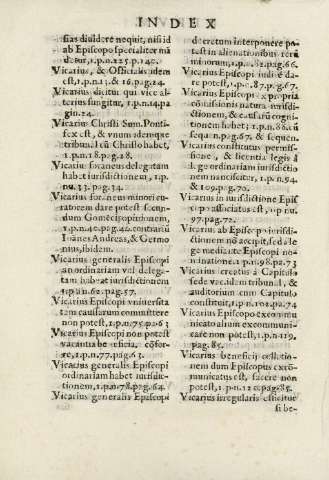 INDEX
sias diuidere nequit, nisi id
ab Episcopo specialiter mā
detur, 1.p.n.125.p.140.
Vicarius, & Officialis idem
est, 1.p.n.13.& pag.16.
Vicarius dicitur qui vice al-
terius fungitur, 1.p.n.14.pa
gin.24.
Vicarius Christi Sum. Ponti-
fex est, & vnum idemque
tribunal cū Christo habet,
1.p.n.18.pag.28.
Vicarius foraneus delegatam
habet iurisdictionem, 1.p.
nu.33. pag.34.
Vicarius foraneus minori cu-
ratorem dare potest secun-
dum
Ioānes Andreas, & Gemi
nianus, ibidem.
Vicarius generalis Episcopi
an ordinariam vel delega-
tam habeat iurisdictionem
1.p.n.62.pag.57.
Vicarius Episcopi vniuersita
tem causarum committere
non potest, 1.p.n.75.p.63
Vicarius Episcopi non potest
vacantia beneficia, cōfer-
re, 1.p.n.77.pag.63.
Vicarius generalis Episcopi
ordinariam habet iurisdic-
tionem, 1.p.n.78.pag.64.
Vicarius generalis Episcopi
decretum interponere po-
test in alienationibus rerū
minorum, 1.p.n.82.pag.66.
Vicarius Episcopi iudicē da-
re potest, 1.p.n.87.p.67.
Vicarius Episcopi ex propria
comissionis natura iurisdi-
ctionem, & causarū cogni-
tionem habet; 1.p.n.88.cū
sequa.n.p.67. & sequen.
Vicarius constituitus permis-
sione, & licentia legis à
lege ordinariam iurisdictio
nem nanciscitur, 1.p.n.94.
& 109.pag.70.
Vicarius in iurisdictione Epis
copo associatus est, 1.p. nu.
97.pag.72.
Vicarius ab Episcopo iurisdi-
ctionem nō accipit, sed à le
ge mediante Episcopi no-
minatione. 1.p.n.98.pa.73
Vicarius creatus à Capitulo
sede vac. idem tribunal, &
auditorium cum Capitulo
constituit, 1.p.n.102.pa.74
Vicarius Episcopo excommu
nicato alium excommuni-
care non potest, 1.p.n.119
pag.85.
Vicarius beneficij collatio-
nem dum Episcopus excō-
municatus est, facere non
potest, 1.p.n.120.pag.85.
Vicarius irregularis efficitur
si be-